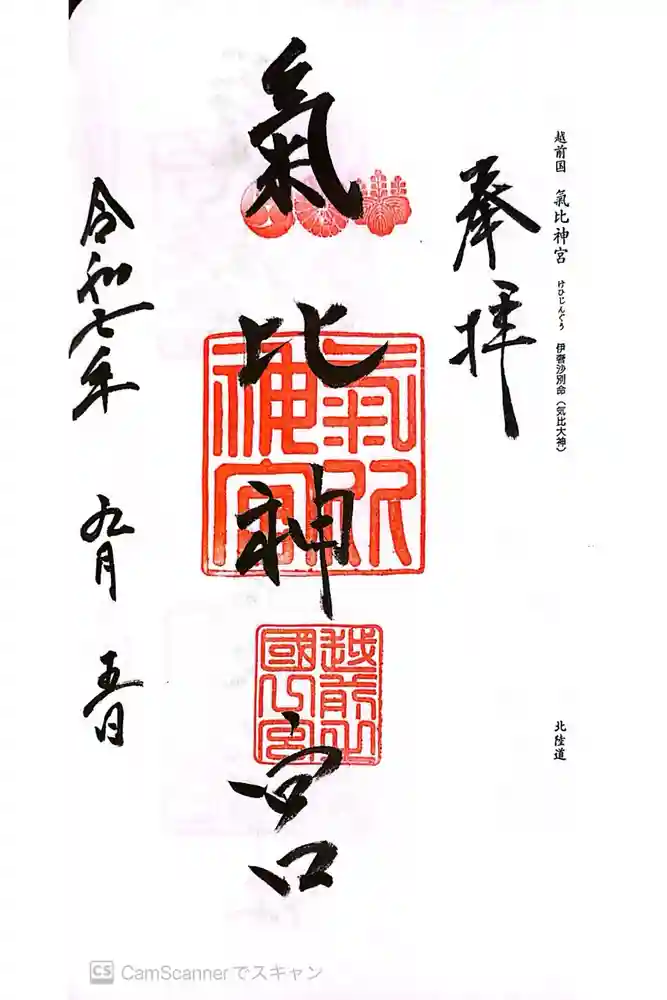 越前国 氣比神宮 けひじんぐう 伊奢沙別命（気比大神）
北陸道
奉拝
氣比神宮
氣比神宮
越前一
國
令和七年 九月 五日
CS CamScannerでスキャン